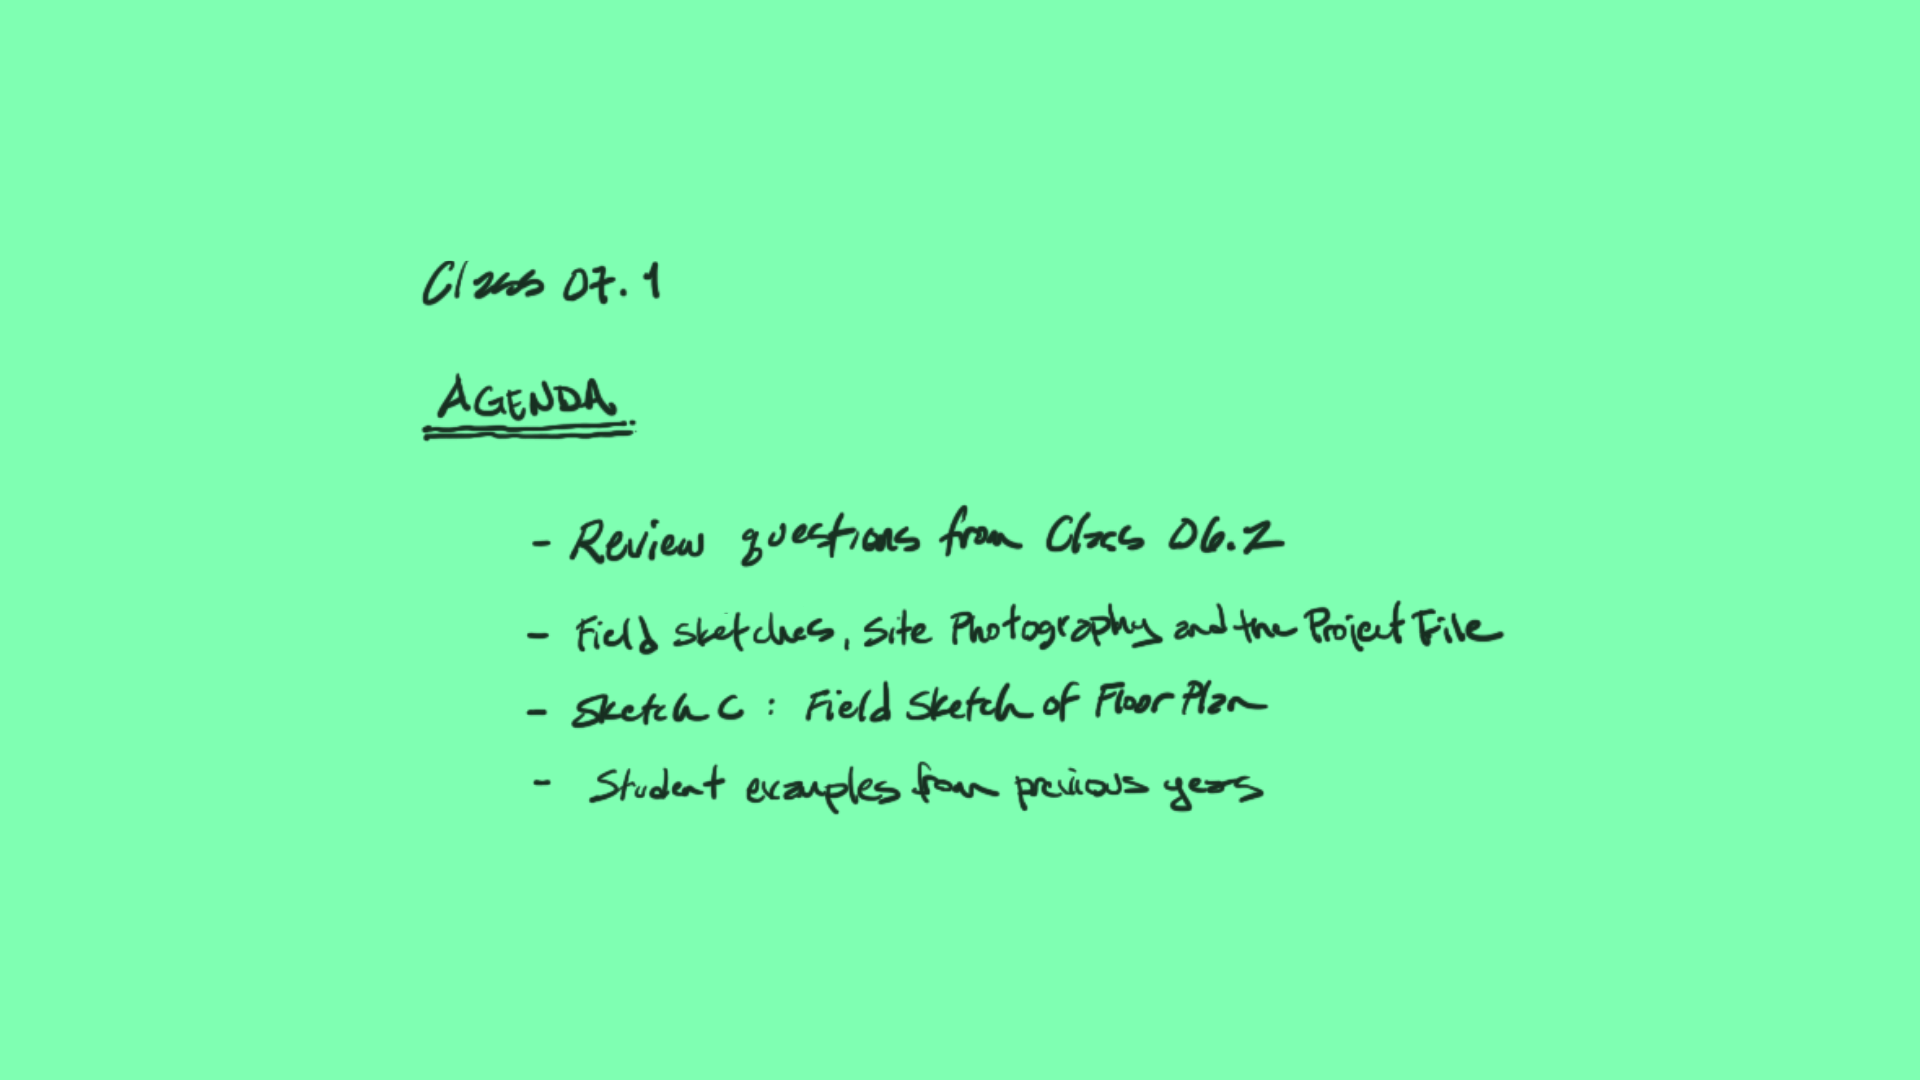 Class 07.1
AGENDA
- Review questions from Class 06.2
- Field sketches, Site Photography and the Project File
- Sketch C : Field Sketch of Floor Plan
- Student examples from previous years